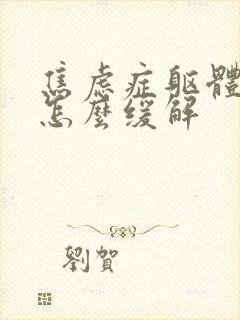 焦虑症躯體
怎麼缓解
劉賀